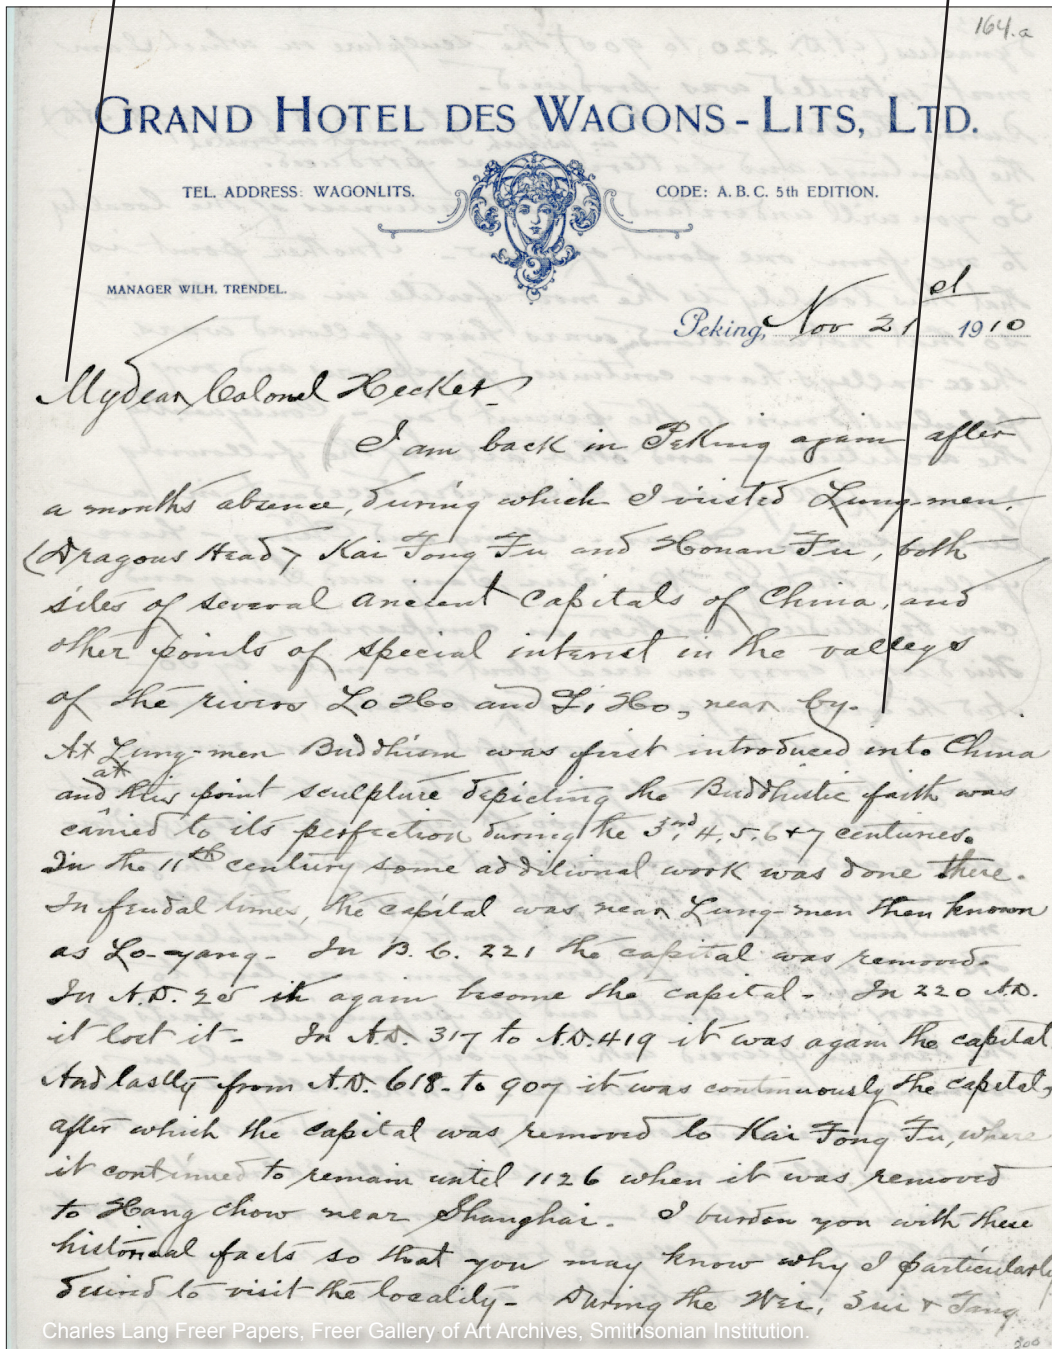 164.a
GRAND HOTEL DES WAGONS-LITS, LTD.
TEL. ADDRESS: WAGONLITS.
CODE: A.B.C. 5th EDITION.
MANAGER WILH. TRENDEL.
Peking, Nov 21st 1910
My dear Colonel Hecker
I am back in Peking again after
a months absence, during which I visited Lung-men,
(Dragons Head, Kai Fong Fu and Honan Fu, both
sites of several ancient capitals of China, and
other points of special interest in the valleys
of the rivers Lo Ho and Yi Ho, near by.
At Lung-men Buddhism was first introduced into China
and at this point sculpture depicting the Buddhistic faith was
carried to its perfection during the 3rd, 4, 5, 6 & 7 centuries.
In the 11th century some additional work was done there.
In feudal times, the capital was near Lung-men then known
as Lo-yang - In B.C. 221 the capital was removed.
In A.D. 25 it again become the capital - In 220 A.D.
it lost it - In A.D. 317 to A.D. 419 it was again the capital
And lastly from A.D. 618 - to 907 it was continuously the capital,
after which the capital was removed to Kai Fong Fu, where
it continued to remain until 1126 when it was removed
to Hang chow near Shanghai - I burden you with these
historical facts so that you may know why I particularly
desired to visit the locality - During the Wei, Sui & Tang
Charles Lang Freer Papers, Freer Gallery of Art Archives, Smithsonian Institution.